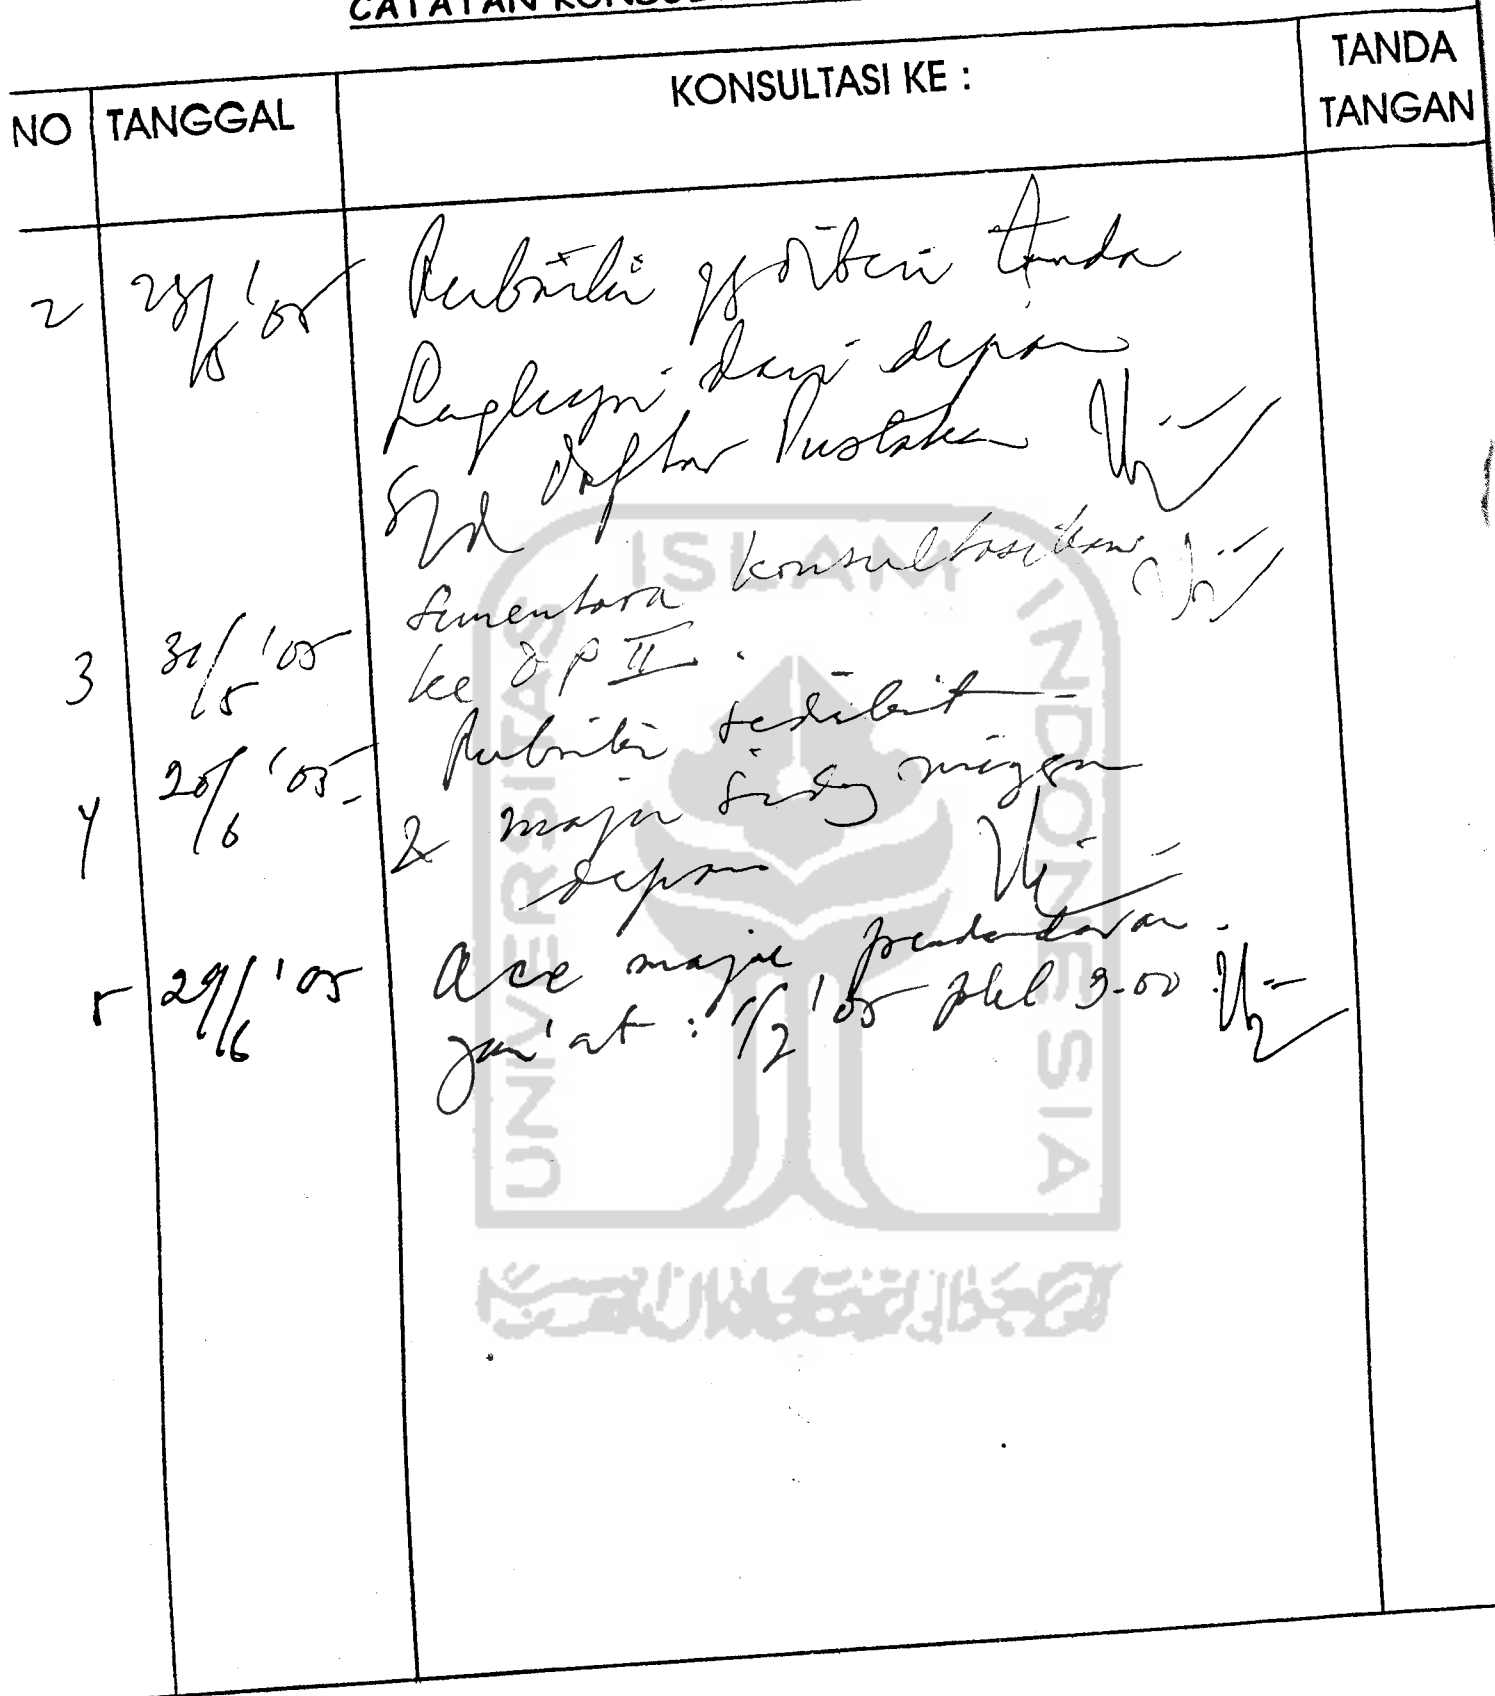 CATATAN
NO TANGGAL KONSULTASI KE : TANDA TANGAN
2 /5 '05 Perbaiki yg diberi tanda
Lengkapi dari depan
s/d daftar Pustaka
3 31/5 '05 Sementara konsultasikan
ke DP II.
4 20/6 '05 Perbaiki sedikit
& maju sidang minggu
depan
5 29/6 '05 Acc maju pendadaran.
Jum'at : '05 pkl 9.00
UNIVERSITAS ISLAM INDONESIA